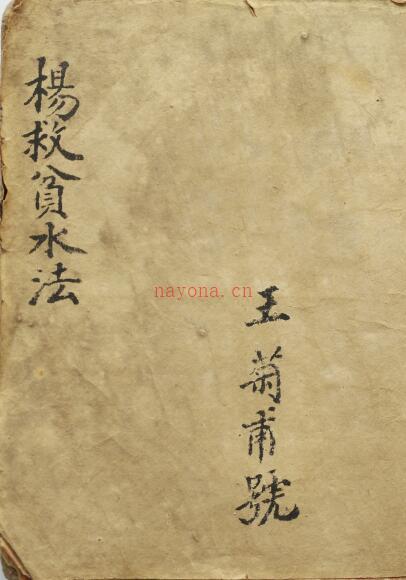 楊救貧水法
王菊甫號
nayona.cn